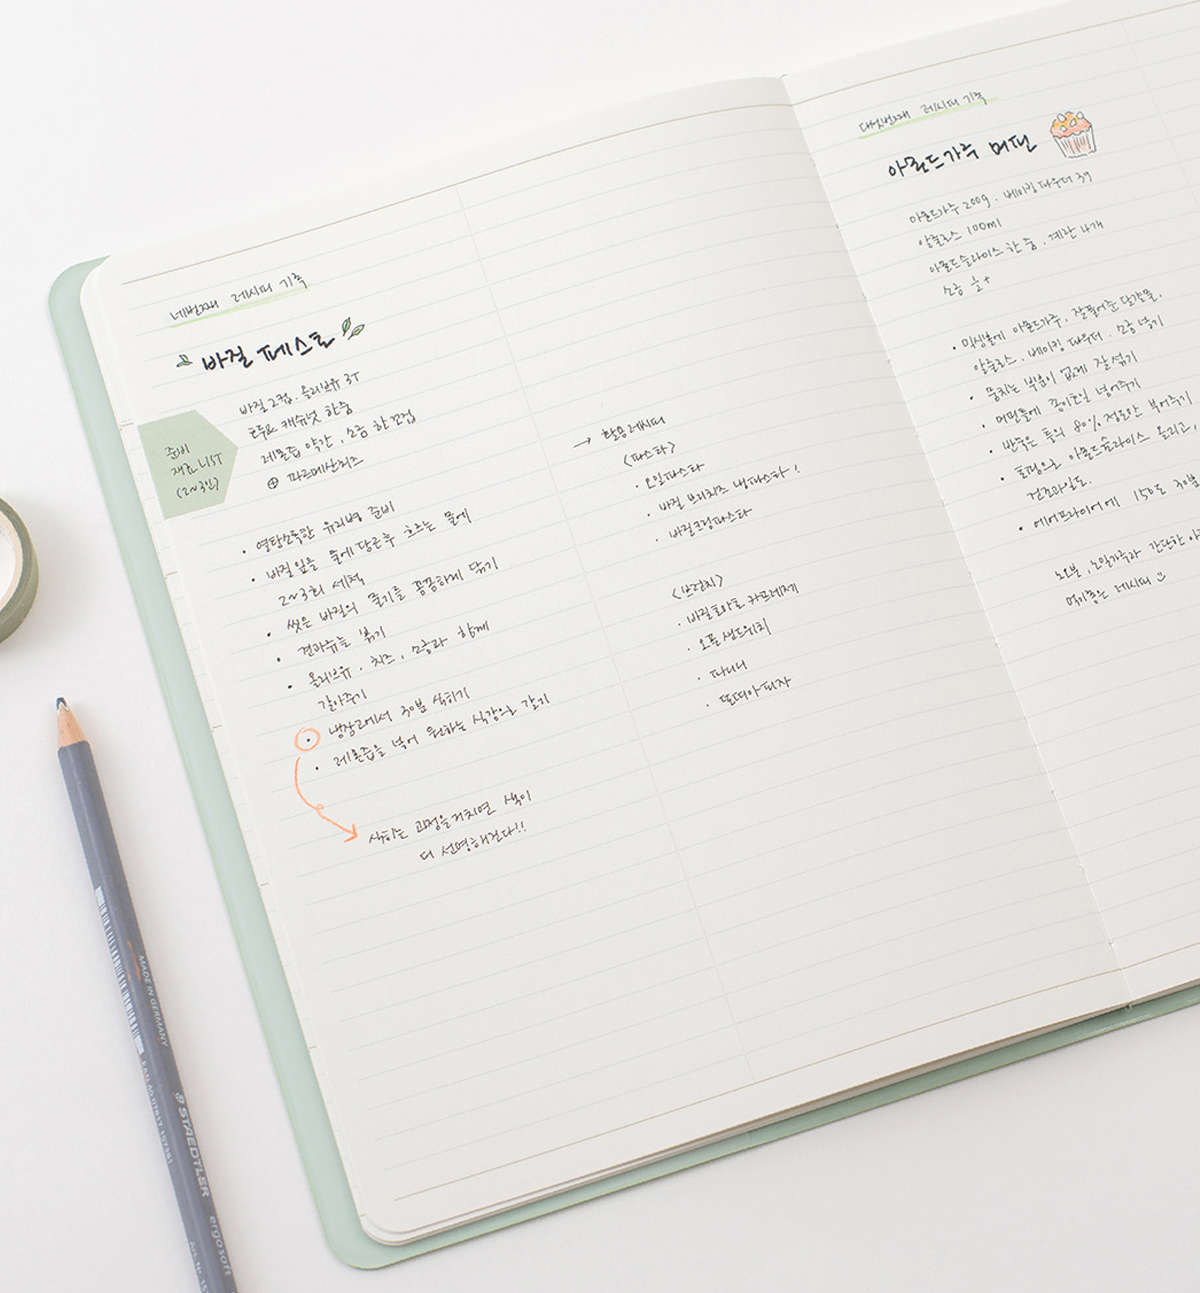 네번째 레시피 기록
바질 페스토
바질 2컵, 올리브유 3T
호두와 캐슈넛 한줌
레몬즙 약간, 소금 한꼬집
⊕ 파르메산치즈
준비
재료 LIST
(2~3인)
• 열탕소독한 유리병 준비
• 바질잎을 물에 담근후 흐르는 물에
2~3회 세척
• 씻은 바질의 물기를 꼼꼼하게 닦기
• 견과류는 볶기
• 올리브유, 치즈, 소금과 함께
갈아주기
• 냉장고에서 30분 식히기
• 레몬즙을 넣어 원하는 식감으로 갈기
식히는 과정을거치면 색이
더 선명해진다!!
→ 활용레시피
<파스타>
· 오일파스타
· 바질 브리치즈 냉파스타!
· 바질크림파스타
<브런치>
· 바질토마토 카프레제
· 오픈샌드위치
· 파니니
· 또띠아피자
다섯번째 레시피 기록
아몬드가루 머핀
아몬드가루 200g, 베이킹파우더 3g
알룰로스 100ml
아몬드슬라이스 한줌, 계란 4개
소금
• 믹싱볼에 아몬드가루, 잘풀어준 달걀물,
알룰로스, 베이킹파우더, 소금 넣기
• 뭉치는 부분이 없게 잘 섞기
• 머핀틀에 종이호일 넣어주기
• 반죽은 틀의 80% 정도만 부어주기
• 토핑으로 아몬드슬라이스 올리고,
건조과일도
• 에어프라이어에 150도 30분
노오븐, 노밀가루라 간단한
먹기좋은 레시피
MADE IN GERMANY
STAEDTLER
ergosoft